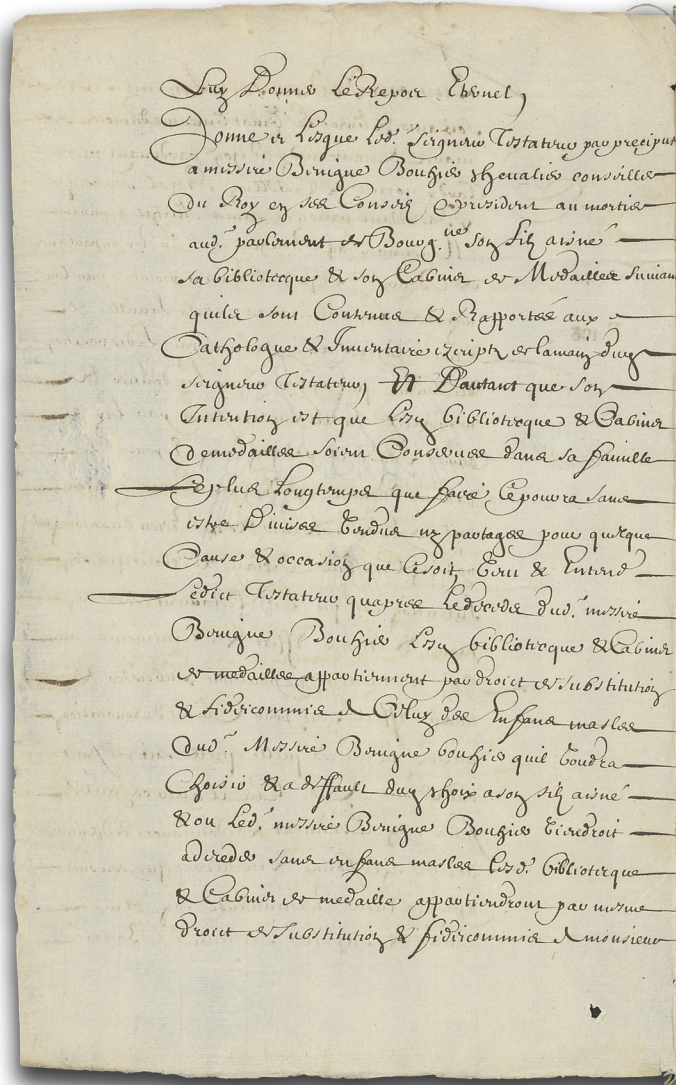 Luy Donner Le Repos Eternel,
Donne et Legue Led.t Seigneur Testateur par preciput
a messire Benigne Bouhier chevalier conseiller
Du Roy en ses Conseils president au mortier
aud.t parlement de Bourg.ne son filz aisné
sa bibliotecque & son Cabinet de Medailles suivant
quilz sont Contenus & Rapportés aux
Cathologue & Inventaire escripts de la main dud.
seigneur Testateur, Et D'autant que son
Intention est que Les.d. bibliotecque & Cabinet
de medailles soient Conservés dans sa famille
Le plus Longtemps que faire ce pourra sans
estre Divisés Vendus ny partagés pour quelque
Cause & occasion que ce soit, Veut & Entend
Ledict Testateur qu'apres Le decedz dud.t messire
Benigne Bouhier Lesd. bibliotecque & Cabinet
de medailles appartiennent par droict de substitution
& fideicommis a Celuy des Enfans masles
dud.t Messire Benigne bouhier quil Voudra
Choisir & a deffault dud. choix a son filz aisné
& ou Led.t messire Benigne Bouhier Viendroit
a deceder sans enfans masles Lesd.t bibliotecque
& Cabinet de medaille appartiendront par mesme
droict de substitution & fideicommis a monsieur